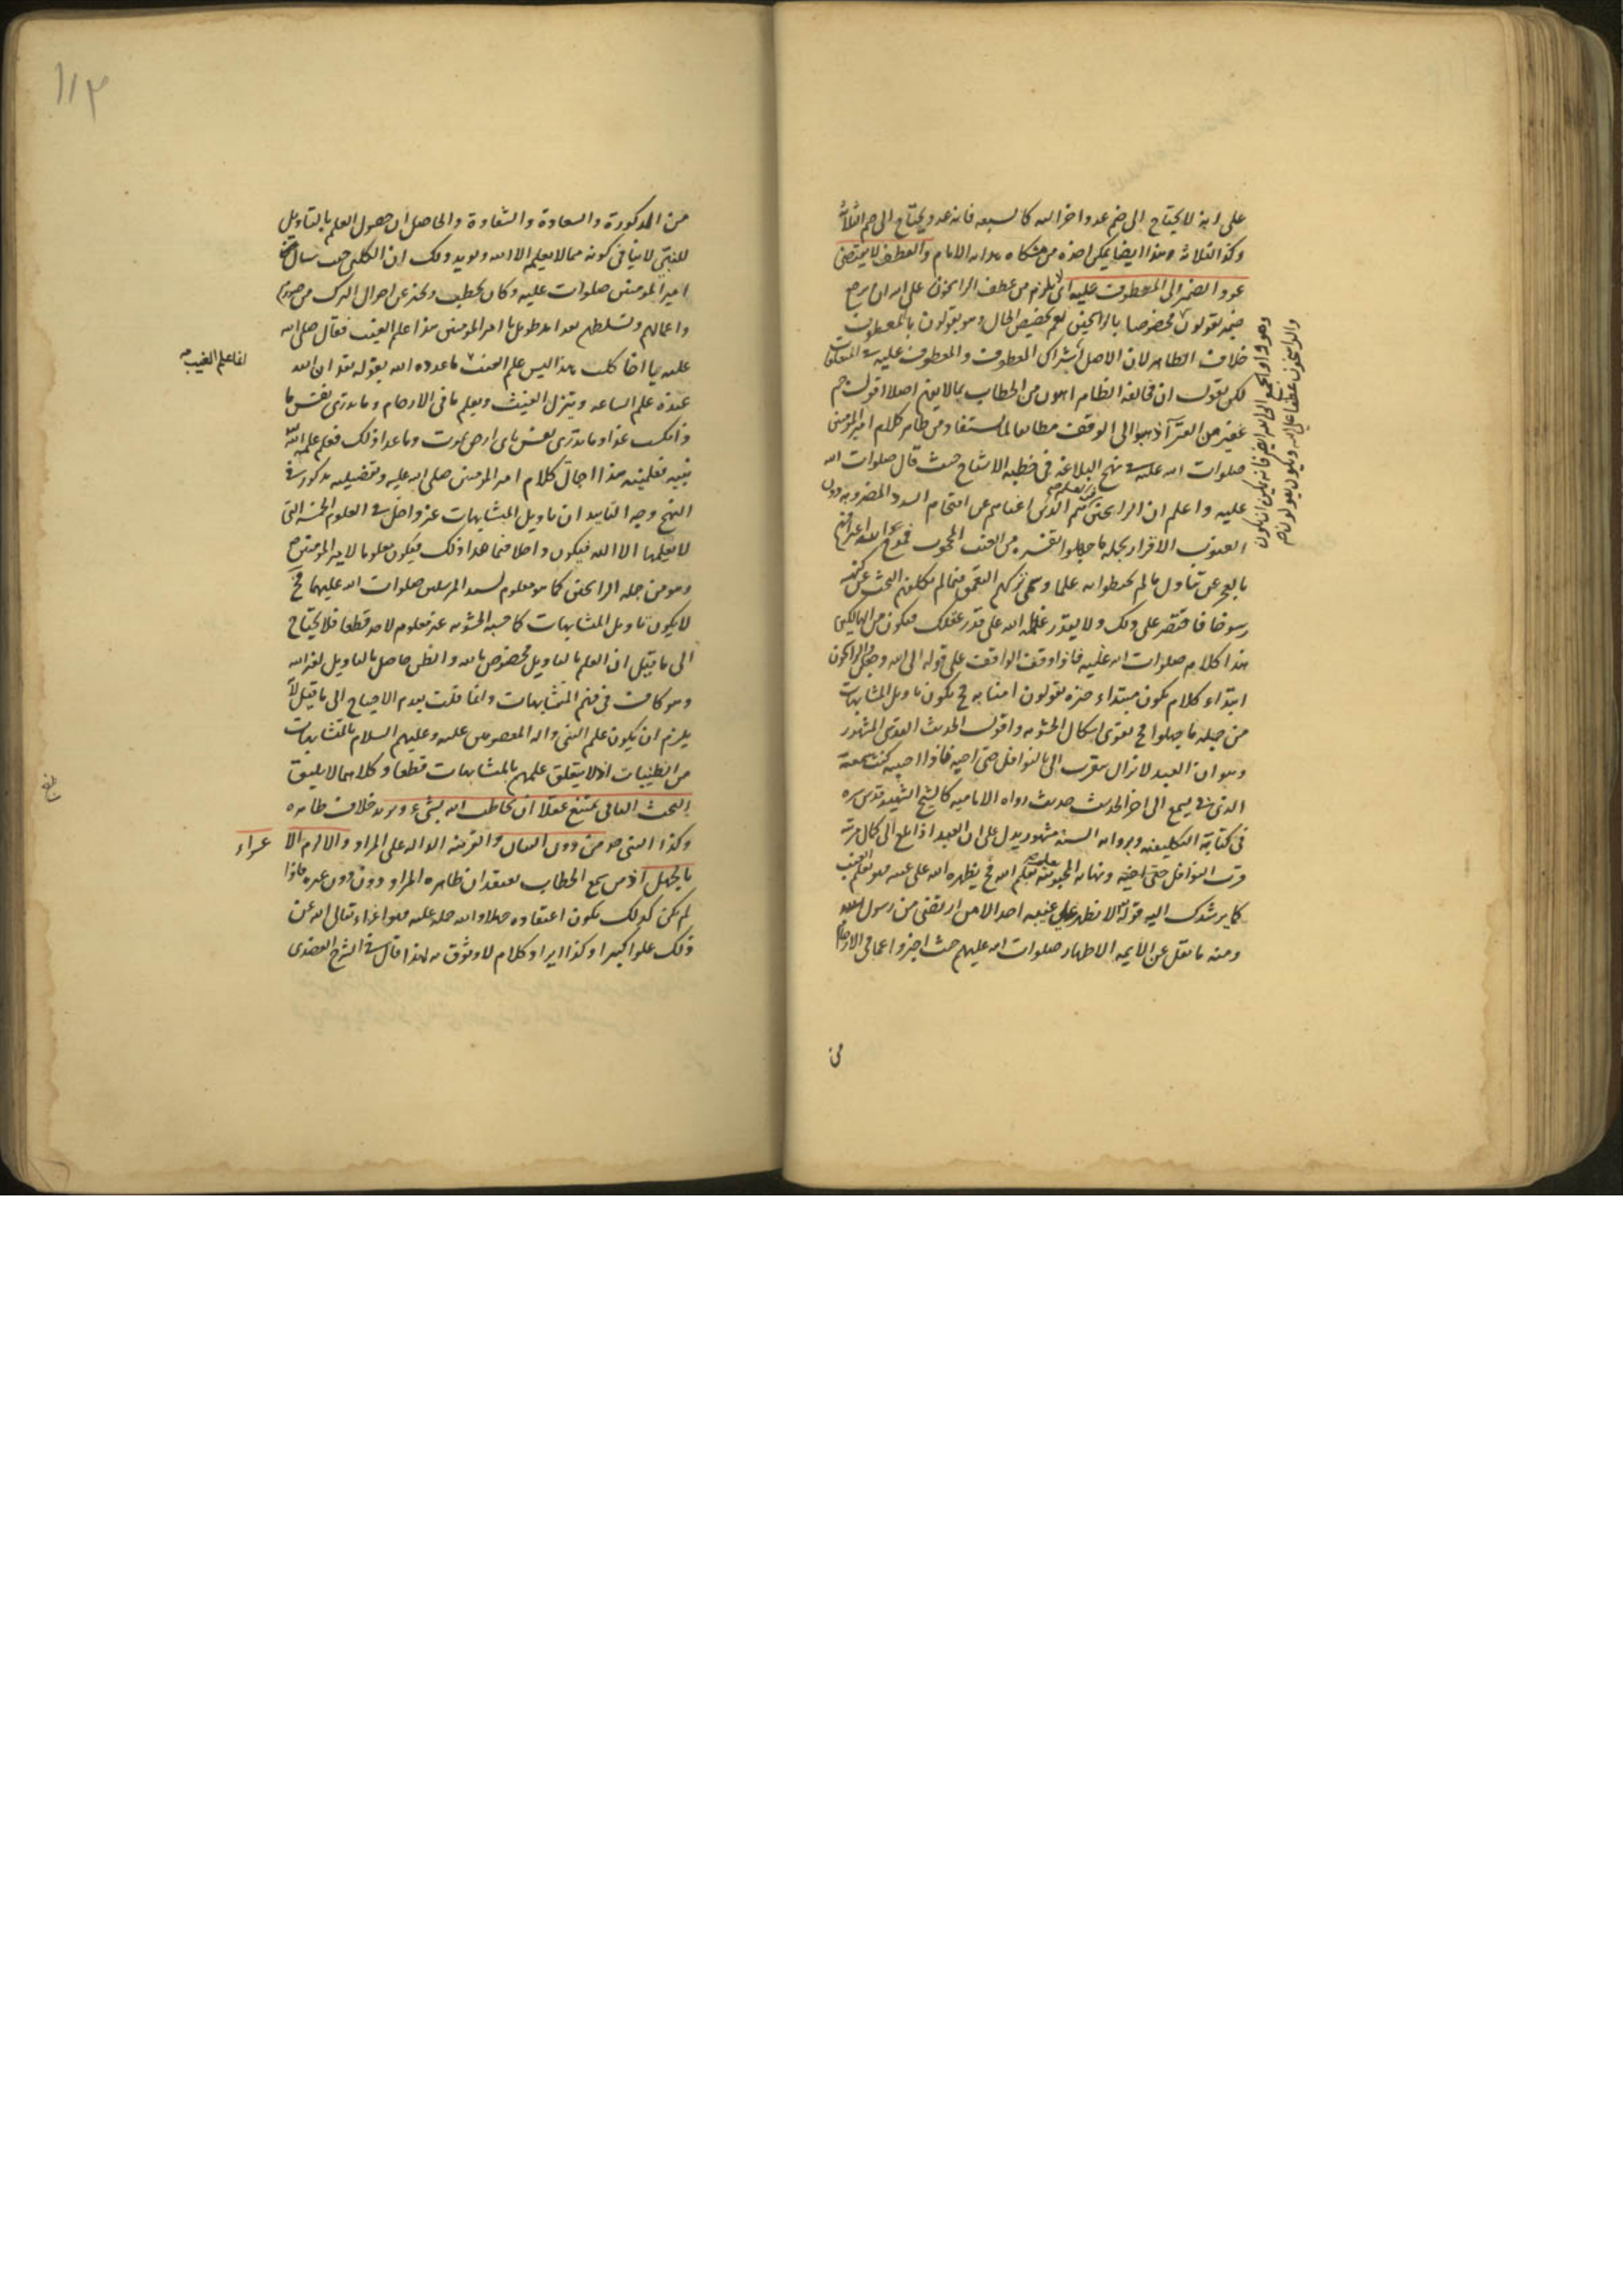 على انه لا يحتاج الى ضم عدد اخر اليه كالسبعه فانه عدد يحتاج الى ضم الثلاثة
وكذا الثلاثه وهذا ايضا يمكن اخذه من مشكاه والعطف لا يقتضى
عود الضمير الى المعطوف عليه اى لا يلزم من عطف الراسخون على الله ان يرجع
ضمير يقولون مخصوصا بالراسخين لعم تخصيص الحال وهو يقولون بالمعطوف
خلاف الظاهر لان الاصل اشتراك المعطوف والمعطوف عليه فى المتعلقات
لكن نقول ان مخالفة الظاهر اهون من الخطاب بما لا يفهم اصلا اقول جم
غفير من القرآ ذهبوا الى الوقف مطابعا لما يستفاد من ظاهر كلام امير المؤمنين
صلوات الله عليه فى نهج البلاغه فى خطبه الاشباح حيث قال صلوات الله
عليه واعلم ان الراسخين فى العلم هم الذين اغناهم عن اقتحام السدد المضروبه دون
الغيوب الاقرار بجمله ما جهلوا تفسيره من الغيب المحجوب فمدح الله اعترافهم
بالعجز عن تناول ما لم يحيطوا به علما وسمى تركهم التعمق فيما لم يكلفهم البحث عن كنهه
رسوخا فاقتصر على ذلك ولا يقدر عظمة الله على قدر عقلك فيكون من الهالكين
هذا كلامه صلوات الله عليه فاذا وقف الواقف على قوله الى الله وجعل والراسخون
ابتداء كلام يكون مبتداء خبره يقولون امنا به فح يكون تاويل المتشابهات
من جمله ما جهلوا فح يقوى اشكال الحشويه واقول الحديث القدسى المشهور
وهو ان العبد لا يزال يتقرب الى بالنوافل حتى احبه فاذا احببه كنت سمعه
الذى يسمع الى اخر الحديث حديث رواه الاماميه كالشيخ الشهيد قدس سره
فى كتابيه التكليفيه ورواه السنه مشهور يدل على ان العبد اذا بلغ الى كمال مرتبه
قرب النوافل حتى احبه ونهايه المحبوبيه يعلم الله فح يظهره الله على غيبه فهو يعلم الغيب
كما يرشدك اليه قوله تع لا يظهر على غيبه احد الا من ارتضى من رسول
ومنه ما نقل عن الايمه الاطهار صلوات الله عليهم حيث اخبروا عما فى الارحام
من
١١٣
من الذكورة والسعادة والشقاوة والحاصل ان حصول العلم بالتاويل
للنبى لا ينافى كونه مما لا يعلم الا الله ويويد ذلك ان الكلبى حيث سال
امير المومنين صلوات عليه وكان يخطب ويخبر عن احوال الترك من
واعمالهم وتسلطهم امير المومنين هذا علم الغيب فقال صلى الله
عليه يا اخا كلب هذا ليس علم الغيب ما عدده الله بقوله تعه ان الله
انما علم الغيب
عنده علم الساعه وينزل الغيث ويعلم ما فى الارحام وما تدرى نفس ما
ذا تكسب غدا وما تدرى نفس باى ارض تموت وما عدا ذلك فعلم علمه الله
نبيه فعلمنيه هذا اجمال كلام امير المومنين صلى الله عليه وتفصيله مذكور فى
النهج وجه التاييد ان تاويل المتشابهات غير داخل فى العلوم الخمسه التى
لا يعلمها الا الله فيكون داخلا فيما عدا ذلك فيكون معلوما لامير المومنين
وهو من جمله الراسخين كما هو معلوم لسيد المرسلين صلوات الله عليهما فح
لا يكون تاويل المتشابهات كما حسبه الحشويه غير معلوم لاحد قطعا فلا يحتاج
الى ما قيل ان العلم بالتاويل مخصوص بالله والظن حاصل بالتاويل لغير الله
وهو كاف فى فهم المتشابهات وانما قلت بعدم الاحتياج الى ما قيل لانه
يلزم ان يكون علم النبى واله المعصومين عليه وعليهم السلام بالمتشابهات
من الظنيات او لا يتعلق علمهم بالمتشابهات قطعا وكلاهما لا يليق
البحث الثانى يمتنع عقلا ان يخاطب الله بشىء ويريد خلاف ظاهره
وكذا النبى ص من دون البيان والقرينه الداله على المراد والا لزم الا
غراء
بالجهل اذ من سمع الخطاب يعتقد ان ظاهره المراد دون غيره فاذا
لم يكن كذلك يكون اعتقاده جهلا والله حمله عليه فهو اغراء تعالى الله عن
ذلك علوا كبيرا وكذا ايراد كلام لا وثوق به لهذا قال فى الشرح العضدى